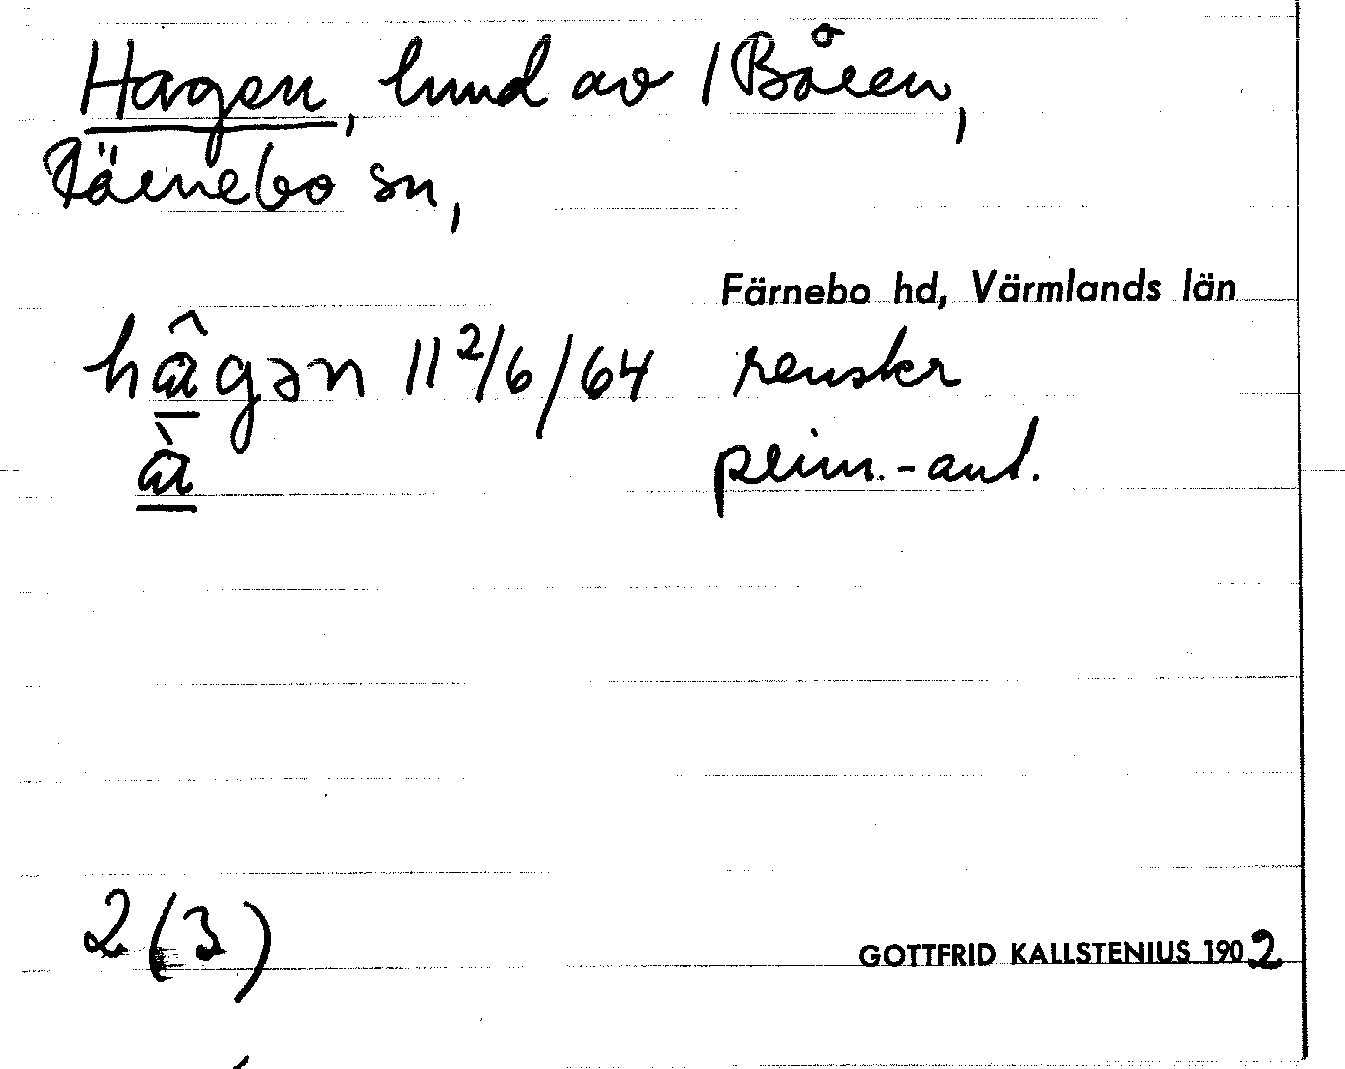 Hagen, lund av / Båren,
Färnebo sn,
Färnebo hd, Värmlands län
hâgən 11 2/6/64 renskr
à prim.-ant.
2(3)
GOTTFRID KALLSTENIUS 1902